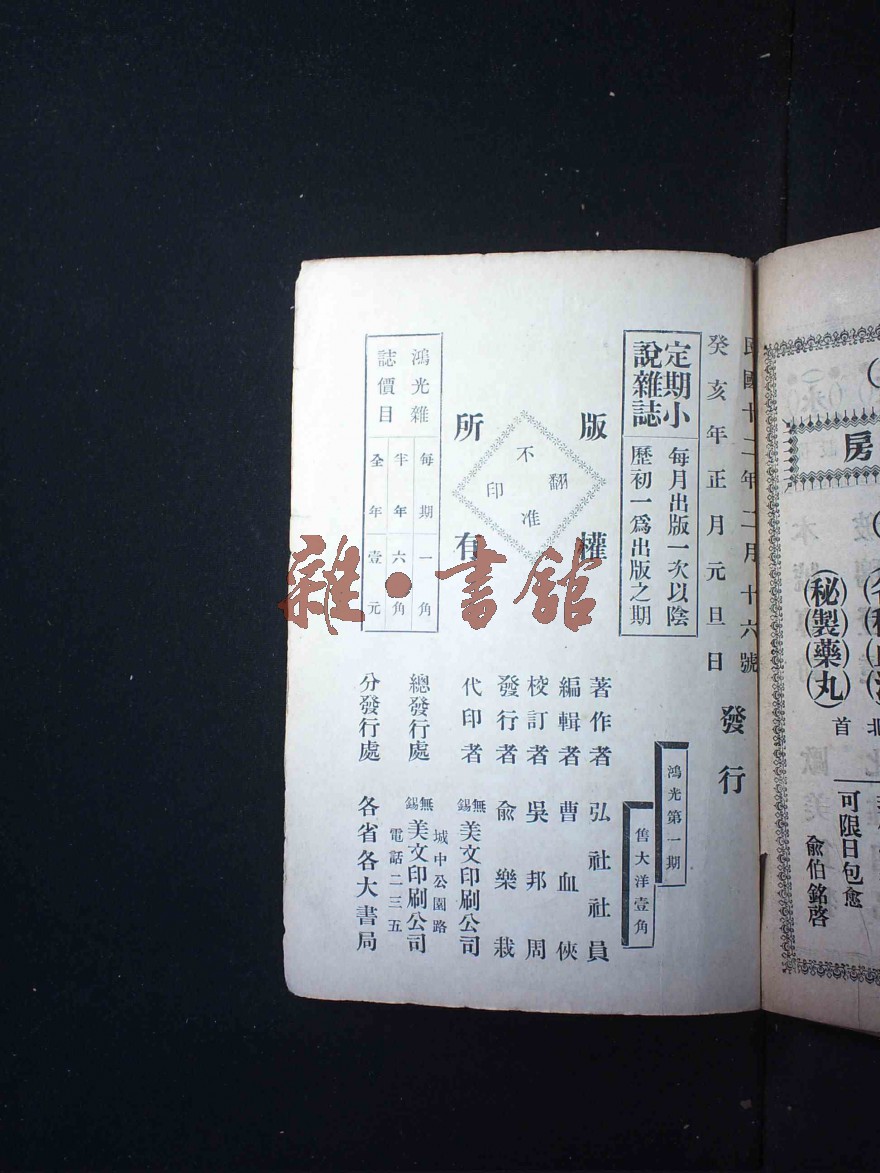 民國十二年二月十六號
癸亥年正月元旦日
發行
定期小
說雜誌
每月出版一次以陰
歷初一爲出版之期
鴻光第一期
售大洋壹角
版權
所有
不准
翻印
鴻光雜
誌價目
每期一角
半年六角
全年壹元
著作者 弘社社員
編輯者 曹血俠
校訂者 吳邦周
發行者 俞樂栽
代印者 無錫美文印刷公司
總發行處 無錫美文印刷公司
城中公園路
電話二三五
分發行處 各省各大書局
雜·書館
房
(秘)(製)(藥)(丸)
首
北
可限日包愈
俞伯銘啓